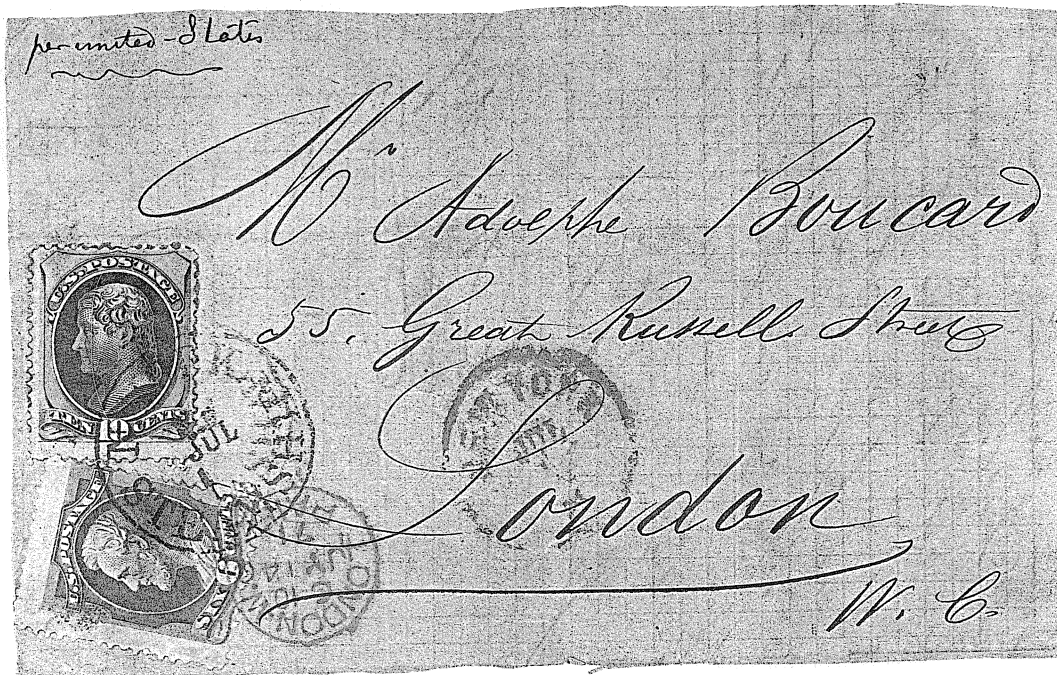 per united-States
Mr Adolphe Boucard
55. Great Russell Street
London
W. C.
U.S. POSTAGE
TEN 10 CENTS
JUL
U.S. POSTAGE
SIX 6 CENTS
LONDON
YORK